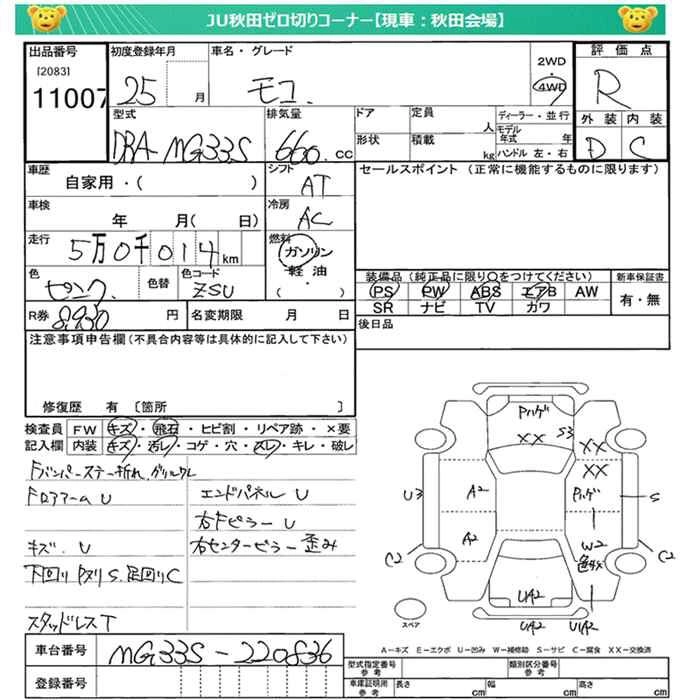 JU秋田ゼロ切りコーナー【現車：秋田会場】
出品番号 初度登録年月 車名・グレード 2WD 4WD 評価点
[2083]
11007 25 月 モコ R
型式 排気量 ドア 定員 人 ディーラー・並行 外装 内装
DBA-MG33S 660 cc 形状 積載 kg モデル年式 年 ハンドル 左・右 D C
車歴 シフト セールスポイント（正常に機能するものに限ります）
自家用・（ ） AT
車検 冷房
年 月（ 日） AC
走行 燃料
5万0千014km ガソリン
軽油
（ ）
色 色替 色コード
ピンク ZSU
装備品（純正品に限り○をつけてください） 新車保証書
PS PW ABS エアB AW 有・無
SR ナビ TV カワ
R券 8,930 円 名変期限 月 日 後日品
注意事項申告欄（不具合内容等は具体的に記入して下さい）
修復歴 有 〔箇所 〕
検査員 FW キズ・飛石・ヒビ割・リペア跡・×要
記入欄 内装 キズ・汚レ・コゲ・穴・スレ・キレ・破レ
Fバンパーステー折れ、グリルワレ
Fロアアーム U エンドパネル U
右Fピラー U
キズ、U 右センターピラー歪み
下回り Pヌリ S、足回り C
スタッドレスT
Pハゲ
XX S3 XX
XX
U3 A2 Pハゲ S
A2 W2
C2 色ボケ C2
UA2
UA2 UA2
スペア
A-キズ E-エクボ U-凹み W-補修跡 S-サビ C-腐食 XX-交換済
車台番号 MG33S-220836
登録番号
型式指定番号 参考 類別区分番号 参考
車庫証明用 参考 長さ cm 幅 cm 高さ cm